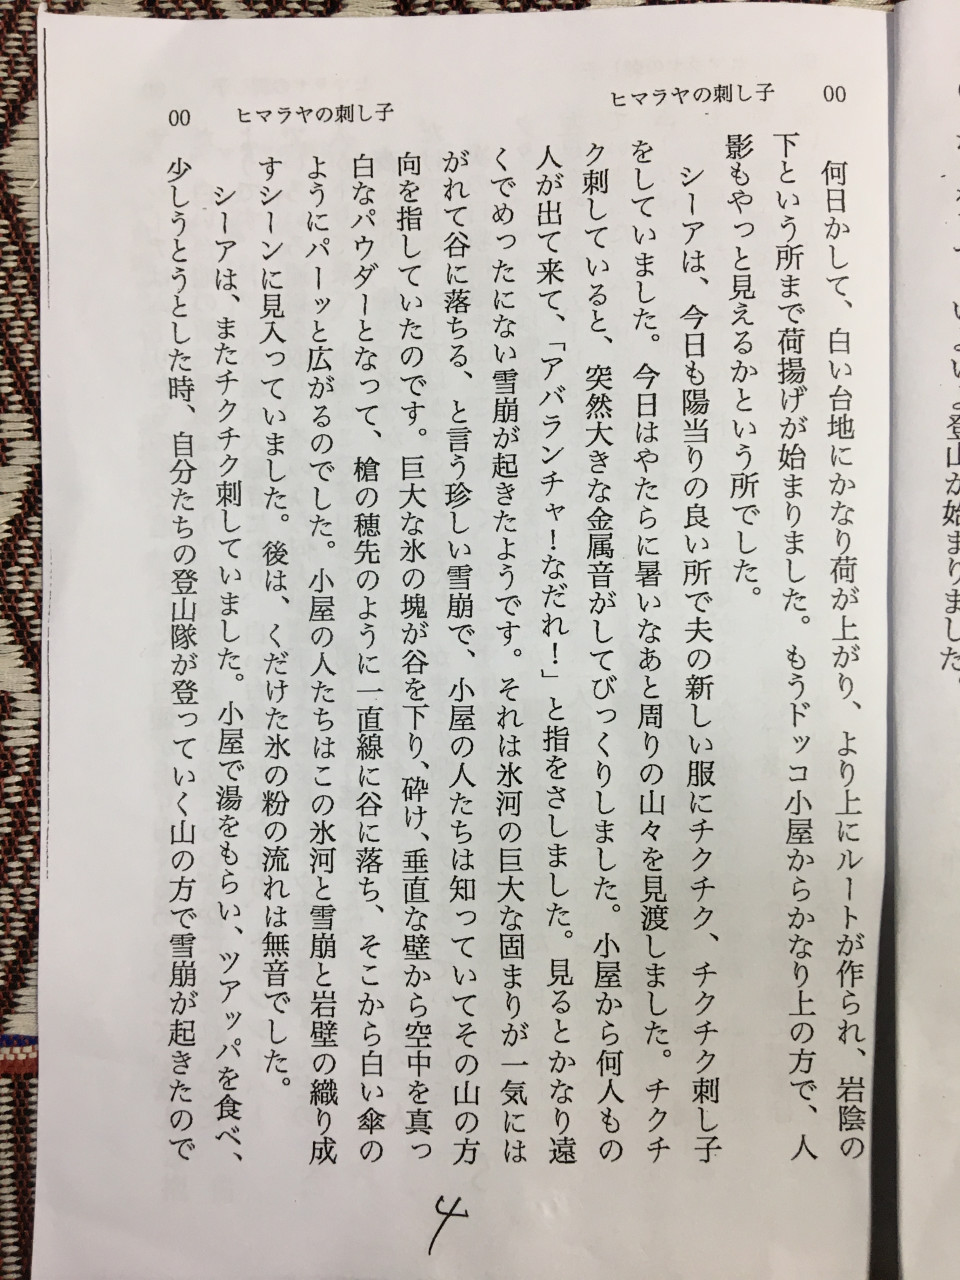 ヒマラヤの刺し子 00
00 ヒマラヤの刺し子
何日かして、白い台地にかなり荷が上がり、より上にルートが作られ、岩陰の
下という所まで荷揚げが始まりました。もうドッコ小屋からかなり上の方で、人
影もやっと見えるかという所でした。
シーアは、今日も陽当りの良い所で夫の新しい服にチクチク、チクチク刺し子
をしていました。今日はやたらに暑いなあと周りの山々を見渡しました。チクチ
ク刺していると、突然大きな金属音がしてびっくりしました。小屋から何人もの
人が出て来て、「アバランチャ！なだれ！」と指をさしました。見るとかなり遠
くでめったにない雪崩が起きたようです。それは氷河の巨大な固まりが一気には
がれて谷に落ちる、と言う珍しい雪崩で、小屋の人たちは知っていてその山の方
向を指していたのです。巨大な氷の塊が谷を下り、砕け、垂直な壁から空中を真っ
白なパウダーとなって、槍の穂先のように一直線に谷に落ち、そこから白い傘の
ようにパーッと広がるのでした。小屋の人たちはこの氷河と雪崩と岩壁の織り成
すシーンに見入っていました。後は、くだけた氷の粉の流れは無音でした。
シーアは、またチクチク刺していました。小屋で湯をもらい、ツアッパを食べ、
少しうとうとした時、自分たちの登山隊が登っていく山の方で雪崩が起きたので
4
いよいよ登山が始まりました。